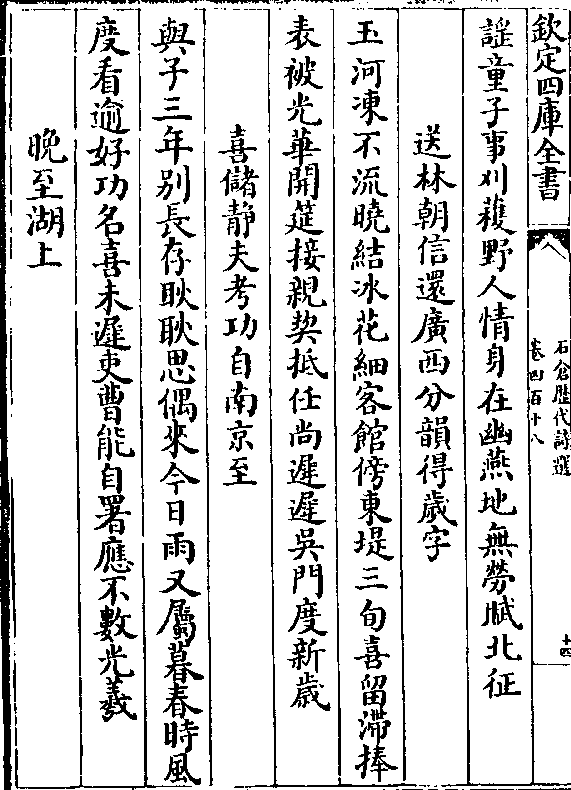 欽定四庫全書
石倉歷代詩選
卷四百十八
十四
謡童子事刈穫野人情身在幽燕地無勞賦北征
送林朝信還廣西分韻得歲字
玉河凍不流曉結冰花細客館傍東堤三旬喜留滯捧
表被光華開筵接親契抵任尚遲遲吳門度新歲
喜儲静夫考功自南京至
與子三年别長存耿耿思偶來今日雨又屬暮春時風
度看逾好功名喜未遲吏曹能自署應不數光羲
晚至湖上